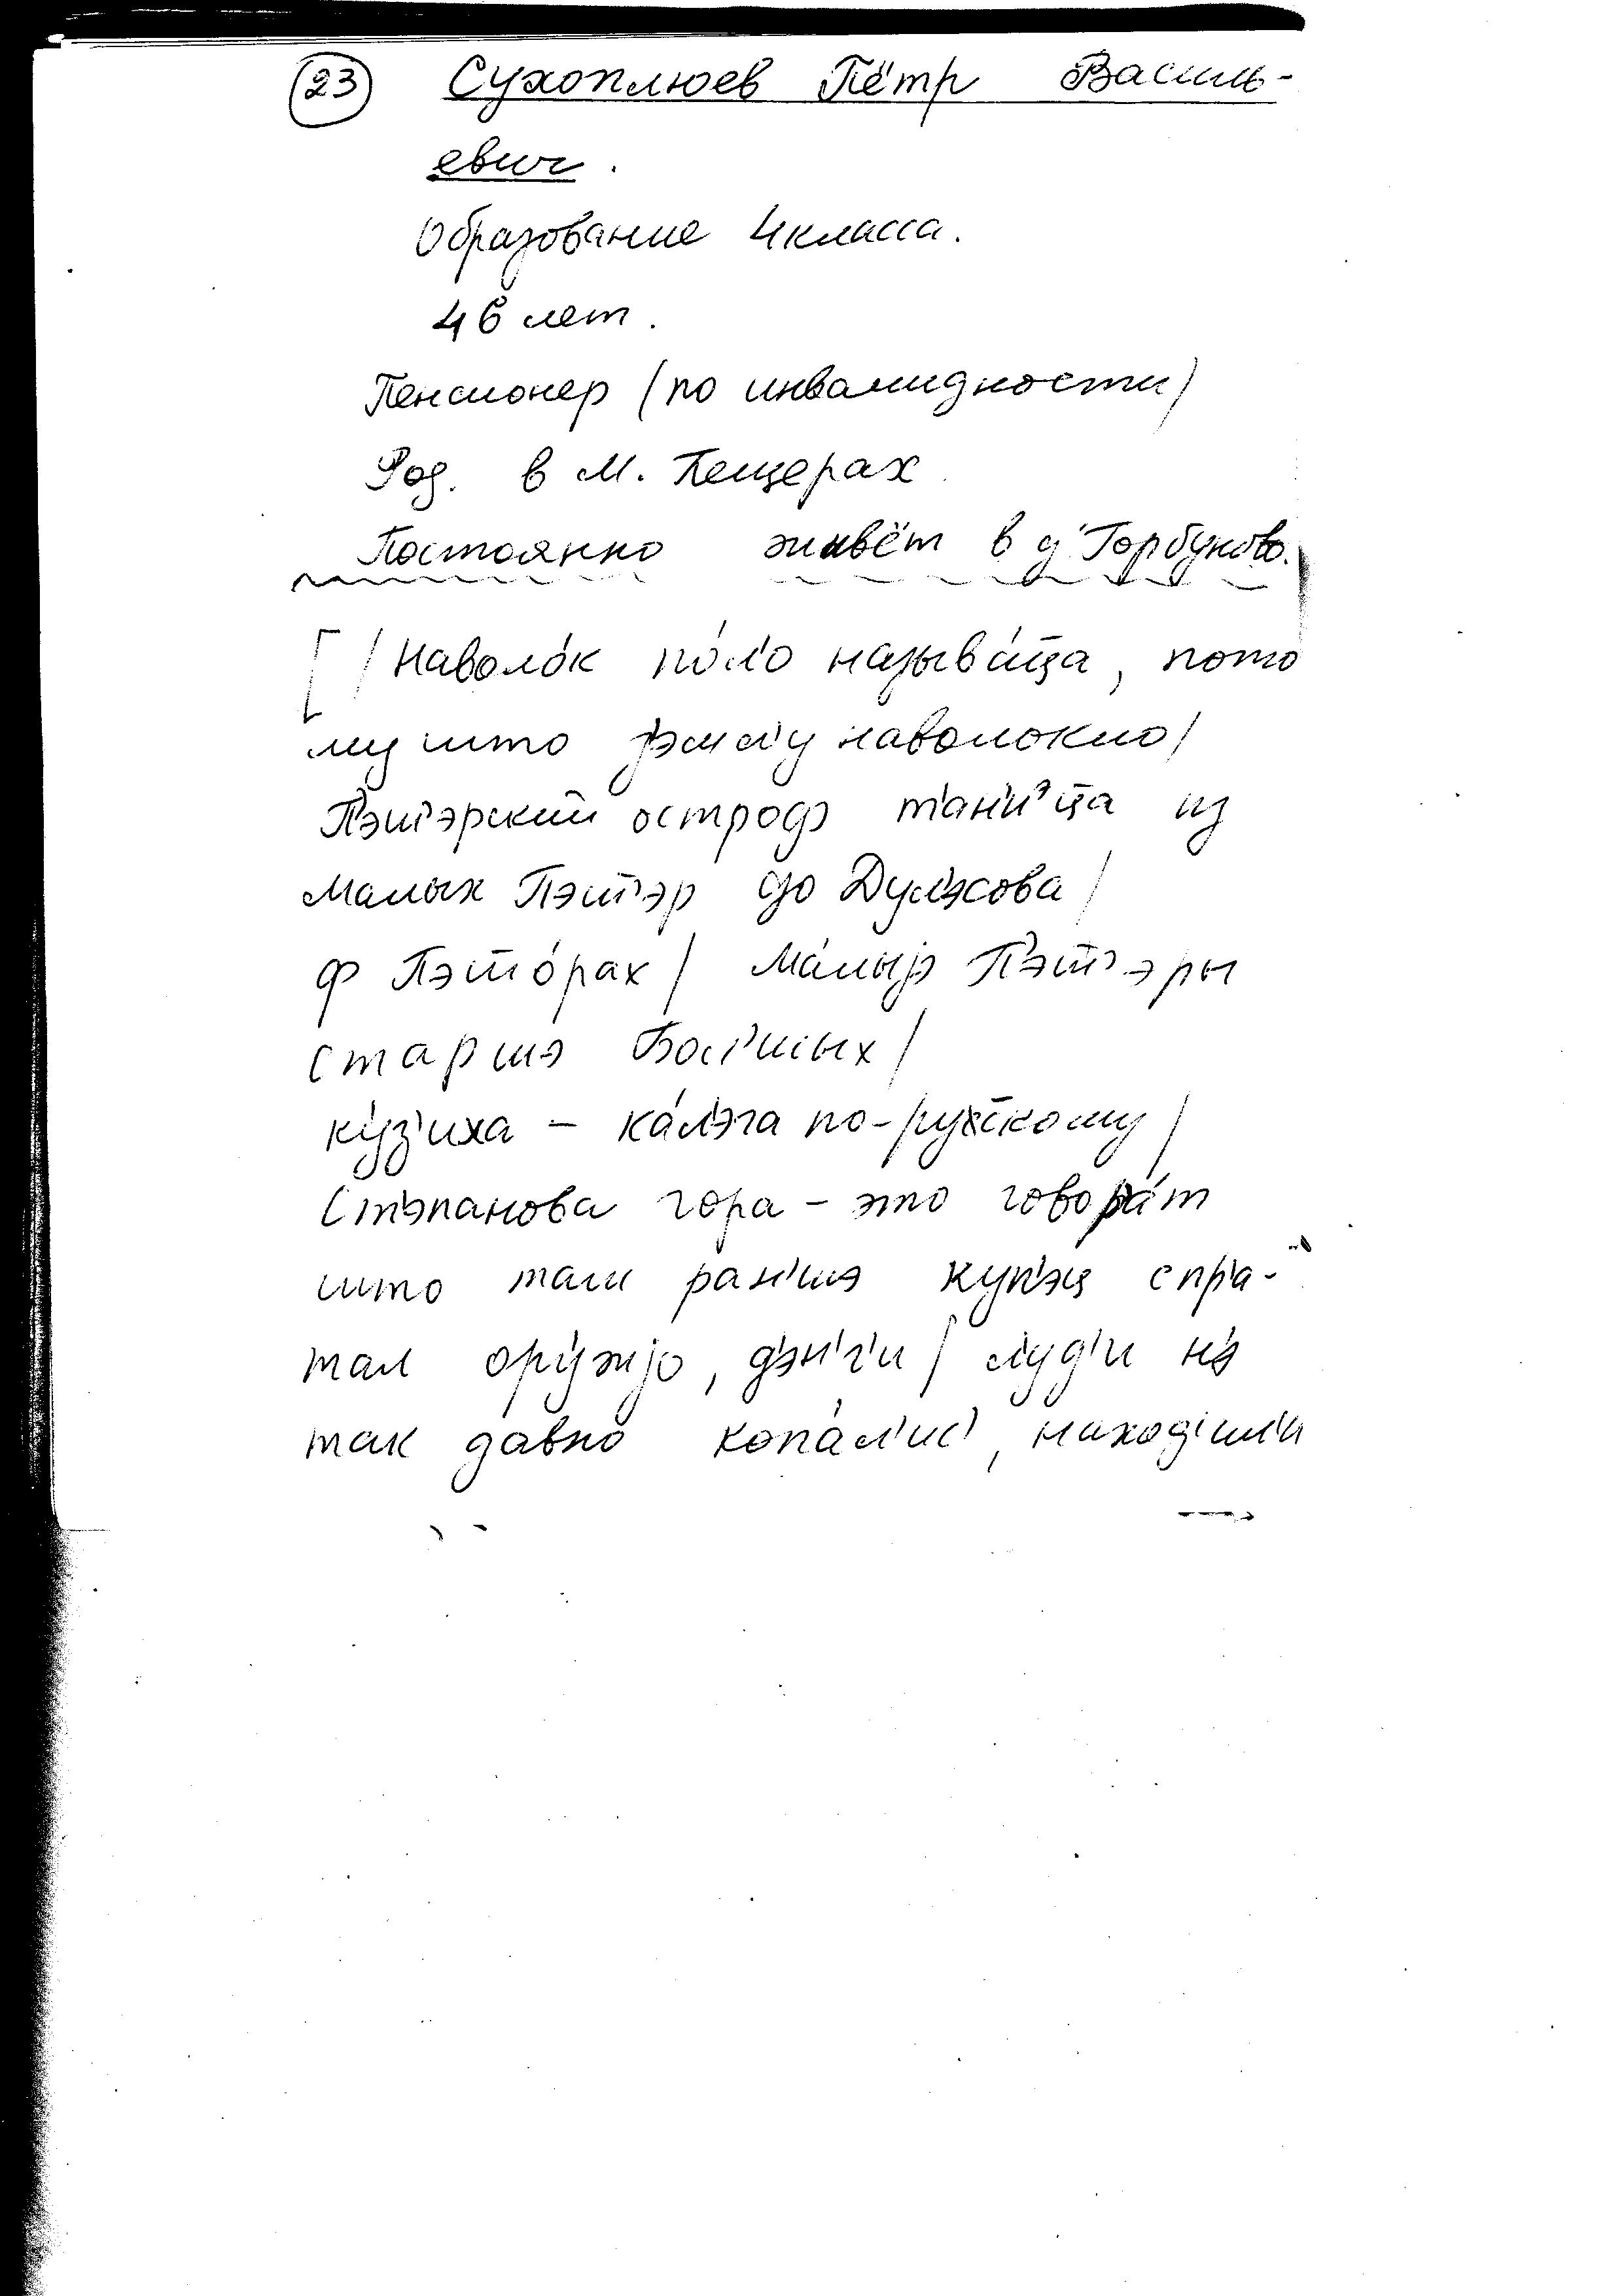 (23) Сухоплюев Пётр Василь-
евич.
Образование 4 класса.
46 лет.
Пенсионер (по инвалидности)
Род. в М. Пещерах
Постоянно живёт в д. Горбуново.
[ / Наволо́к по́л'о называ́ца, пото
му што наволокло /
Пэш'э́рский остроф т'ан'и ца из
Малых Пэш'эр до Дул'эсова /
ф Пэш'о́рах / Ма́лыjэ Пэш'эры
старшэ Бол'шых /
куз'иха – ка́л'эга по-рускому /
Ст'эпанова гора – это говор'а́т
што там ран'шэ куп'эц спр'а-
тал оружjо, д'эн'г'и / л'уд'и н'э
так давно копа́л'ис', наход'ил'и